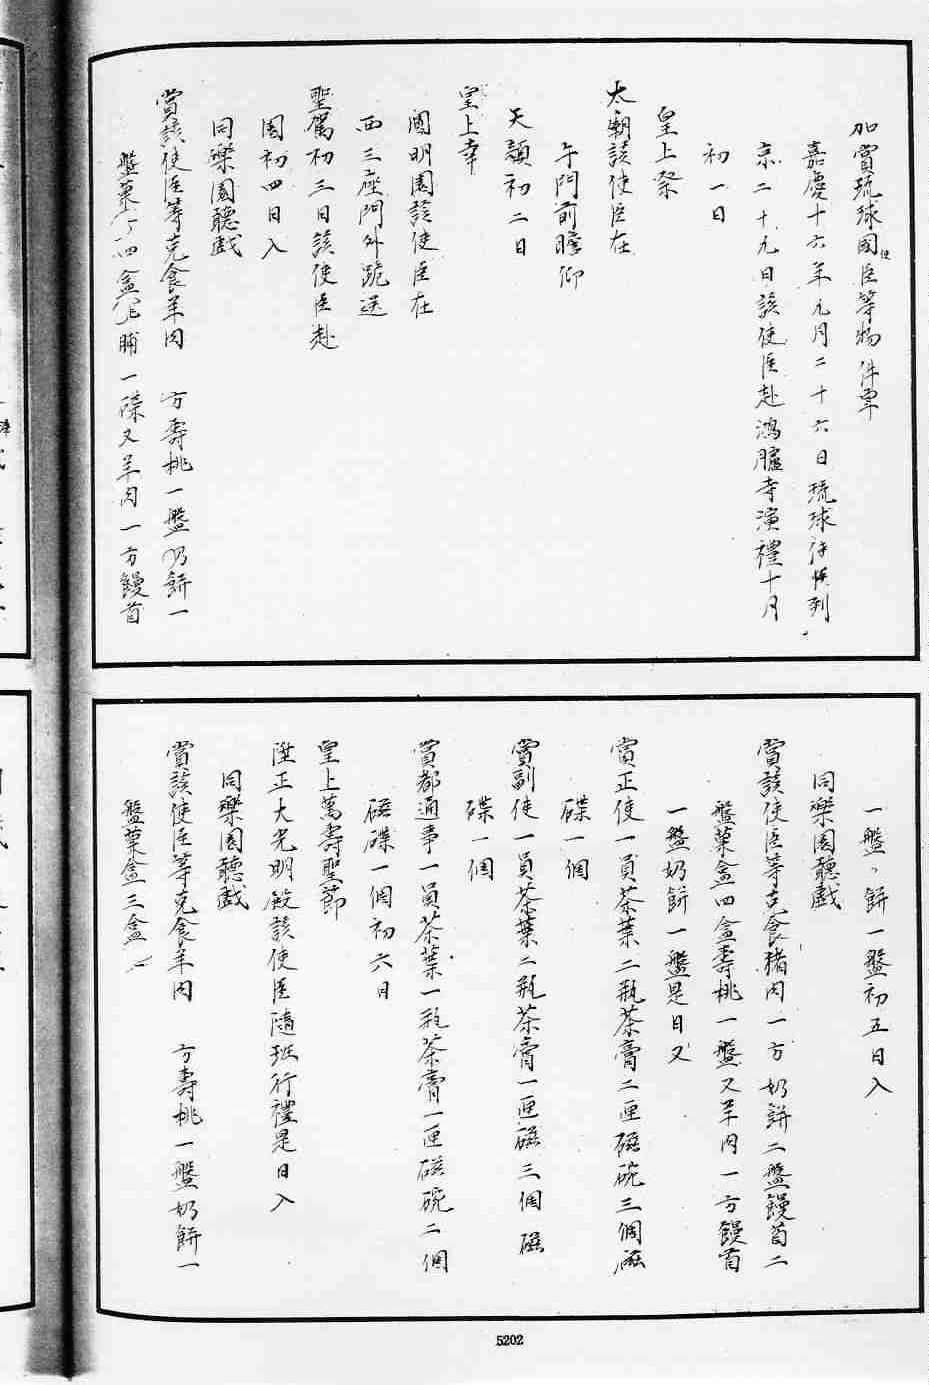 加賞琉球國使臣等物件單
嘉慶十六年九月二十六日琉球待候列
京二十九日該使臣赴鴻臚寺演禮十月
初一日
皇上祭
太廟該使臣在
午門前瞻仰
天顏初二日
皇上幸
圓明園該使臣在
西三座門外跪送
聖駕初三日該使臣赴
園初四日入
同樂園聽戲
賞該使臣等克食羊肉 方壽桃一盤奶餅一
盤菓 四盒 脯一碟又羊肉一方饅首
一盤 餅一盤初五日入
同樂園聽戲
賞該使臣等克食豬肉一方奶餅二盤饅首二
盤菓盒四盒壽桃一盤又羊肉一方饅首
一盤奶餅一盤是日又
賞正使一員茶葉二瓶茶膏二匣磁碗三個磁
碟一個
賞副使一員茶葉二瓶茶膏一匣磁三個磁
碟一個
賞都通事一員茶葉一瓶茶膏一匣磁碗二個
磁碟一個初六日
皇上萬壽聖節
陞正大光明殿該使臣隨班行禮是日入
同樂園聽戲
賞該使臣等克食羊肉 方壽桃一盤奶餅一
盤菓盒三盒
5202